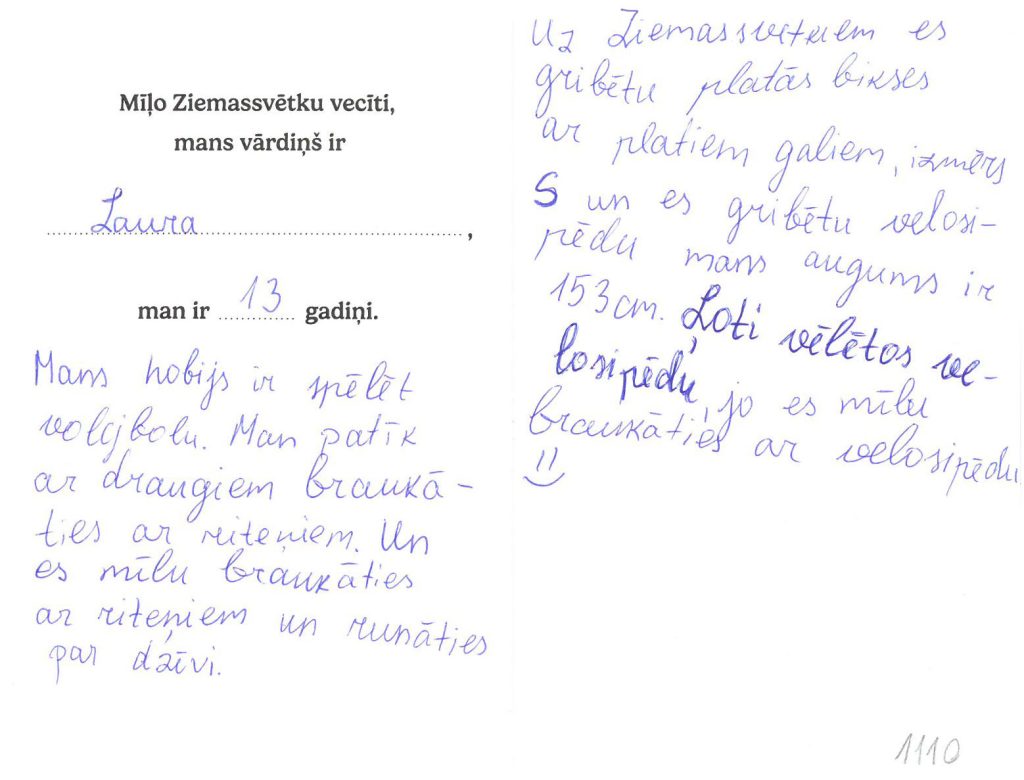 Mīļo Ziemassvētku vecīti,
mans vārdiņš ir
Laura,
man ir 13 gadiņi.
Mans hobijs ir spēlēt
volejbolu. Man patīk
ar draugiem braukā-
ties ar riteņiem. Un
es mīlu braukāties
ar riteņiem un runāties
par dzīvi.
Uz Ziemassvētkiem es
gribētu platās bikses
ar platiem galiem, izmērs
S un es gribētu velosi-
pēdu mans augums ir
153cm. Ļoti vēlētos ve-
losipēdu, jo es mīlu
braukāties ar velosipēdu
1110